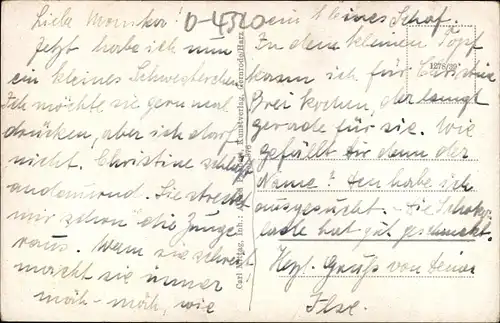 Liebe Monika! D-4320
Jetzt habe ich nun
ein kleines Schwesterchen.
Ich möchte sie gern mal
drücken, aber ich darf
nicht. Christine schläft
andauernd. Sie streckt
mir schon die Zunge
raus. Wenn sie schreit
macht sie immer
mäh-mäh, wie
ein kleines Schaf.
In dem kleinen Topf
kann ich für Christine
Brei kochen, der langt
gerade für sie. Wie
gefällt Dir denn der
Name? Den habe ich
ausgesucht. - Die Schoko-
lade hat gut geschmeckt.
Hzgl. Gruß von Deiner
Ilse.
1276/39
Kunstverlag, Gernrode/Harz
Inh.: